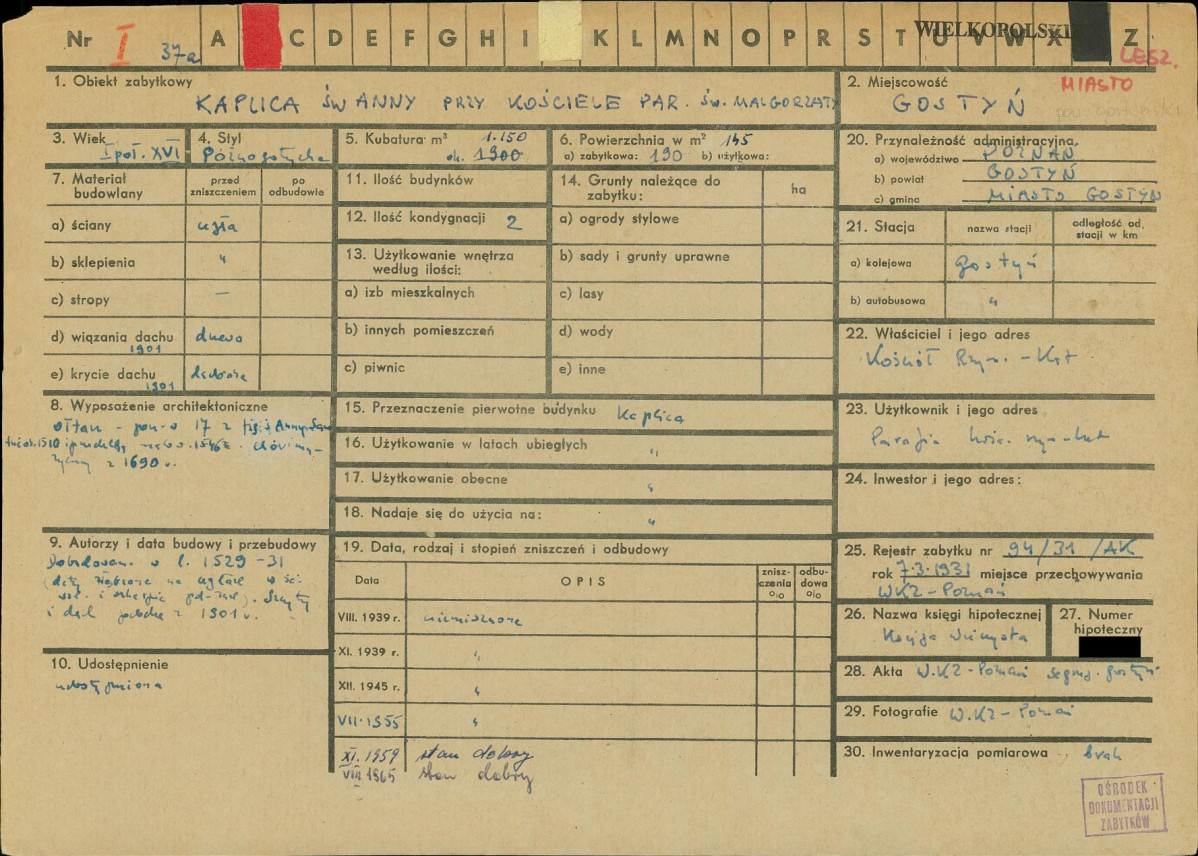 Nr I 37a A C D E F G H I K L M N O P R S T U V W X Z
WIELKOPOLSKI
LESZ.
1. Obiekt zabytkowy
KAPLICA ŚW ANNY PRZY KOŚCIELE PAR. ŚW. MAŁGORZATY
2. Miejscowość
MIASTO
GOSTYŃ
pow. gostyński
3. Wiek
I poł. XVI
4. Styl
Późnogotycka
5. Kubatura m³ 1.150
ok. 1900
6. Powierzchnia w m² 145
a) zabytkowa: 190 b) użytkowa:
20. Przynależność administracyjna
a) województwo POZNAŃ
b) powiat GOSTYŃ
c) gmina MIASTO GOSTYŃ
7. Materiał budowlany
przed zniszczeniem
po odbudowie
a) ściany cegła
b) sklepienia "
c) stropy —
d) wiązania dachu drewo
1901
e) krycie dachu
1901
11. Ilość budynków
12. Ilość kondygnacji 2
13. Użytkowanie wnętrza według ilości:
a) izb mieszkalnych
b) innych pomieszczeń
c) piwnic
14. Grunty należące do zabytku:
ha
a) ogrody stylowe
b) sady i grunty uprawne
c) lasy
d) wody
e) inne
21. Stacja
nazwa stacji
odległość od stacji w km
a) kolejowa Gostyń
b) autobusowa "
22. Właściciel i jego adres
Kościół Rzym. - Kat
8. Wyposażenie architektoniczne
ołtarz 17 z
1510
z 1690 r.
15. Przeznaczenie pierwotne budynku Kaplica
16. Użytkowanie w latach ubiegłych "
17. Użytkowanie obecne "
18. Nadaje się do użycia na: "
23. Użytkownik i jego adres
Parafia kośc. rzym-kat
24. Inwestor i jego adres:
9. Autorzy i data budowy i przebudowy
Dobudowana w l. 1529-31
Szczyty
i dach z 1901 r.
10. Udostępnienie
udostępniona
19. Data, rodzaj i stopień zniszczeń i odbudowy
Data
OPIS
znisz-
czenia
o/o
odbu-
dowa
o/o
VIII. 1939 r. niezniszczona
XI. 1939 r. "
XII. 1945 r. "
VII. 1955 "
XI. 1959 stan dobry
VIII 1965 stan dobry
25. Rejestr zabytku nr 94/31/AK
rok 7.3.1931 miejsce przechowywania
WKZ - Poznań
26. Nazwa księgi hipotecznej
Księga Wieczysta
27. Numer hipoteczny
28. Akta W.KZ - Poznań segreg. Gostyń
29. Fotografie W.KZ - Poznań
30. Inwentaryzacja pomiarowa brak
OŚRODEK
DOKUMENTACJI
ZABYTKÓW